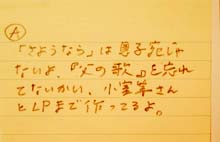 A
「さようなら」は男子宛じゃ
ないよ、『父の歌』を忘れ
てないかい、小室等さん
とLPまで作ってるよ。